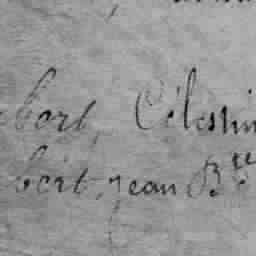 bort, Célestin
bert, Jean Bte